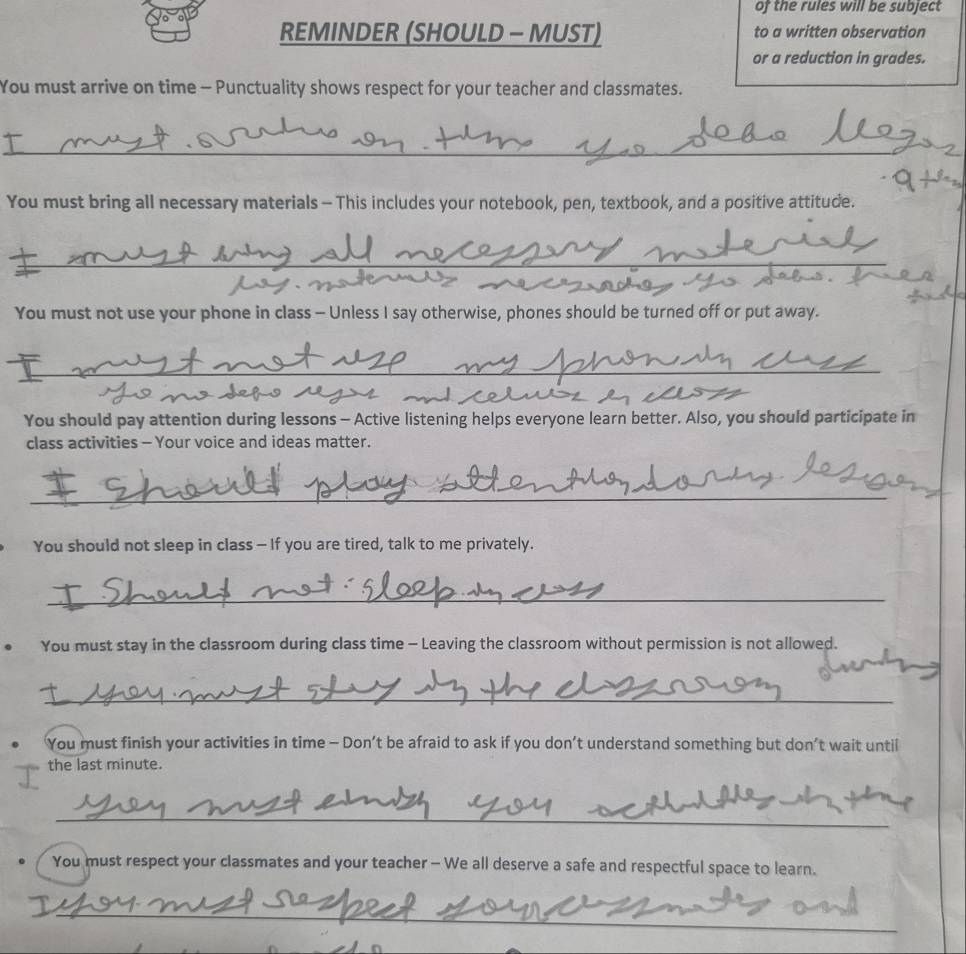 of the rules will be subject
to a written observation
or a reduction in grades.
REMINDER (SHOULD – MUST)
You must arrive on time – Punctuality shows respect for your teacher and classmates.
I must on time yo debo llegar
You must bring all necessary materials – This includes your notebook, pen, textbook, and a positive attitude.
I must bring all necessary materials
los materiales necesarios yo debo
You must not use your phone in class – Unless I say otherwise, phones should be turned off or put away.
I must not use my phone in class
yo no debo usar mi celular en class
You should pay attention during lessons – Active listening helps everyone learn better. Also, you should participate in
class activities – Your voice and ideas matter.
I Should play attention lesson
You should not sleep in class – If you are tired, talk to me privately.
I Should not sleep in class
• You must stay in the classroom during class time – Leaving the classroom without permission is not allowed.
during
I you must stay in the classroom
• You must finish your activities in time – Don't be afraid to ask if you don't understand something but don't wait until
I the last minute.
you must you in time
• You must respect your classmates and your teacher – We all deserve a safe and respectful space to learn.
I you must respect your classmates and